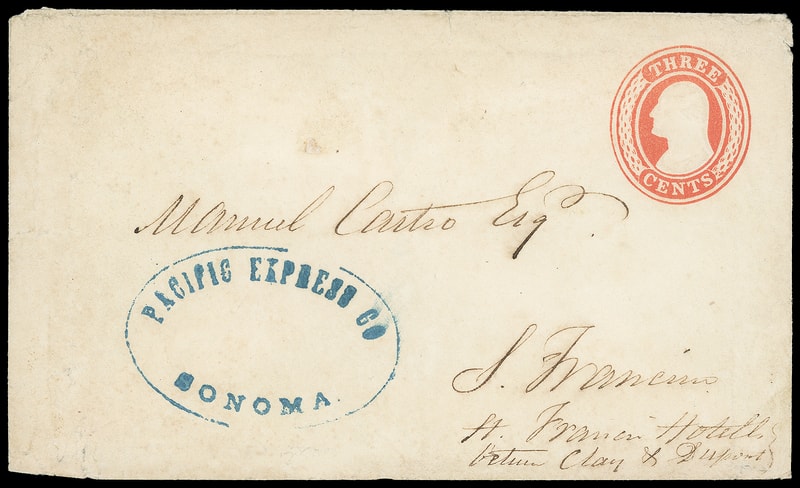 THREE
CENTS
Manuel Castro Esqr.
PACIFIC EXPRESS CO
SONOMA.
S. Francisco
St. Francis Hotell
Clay &